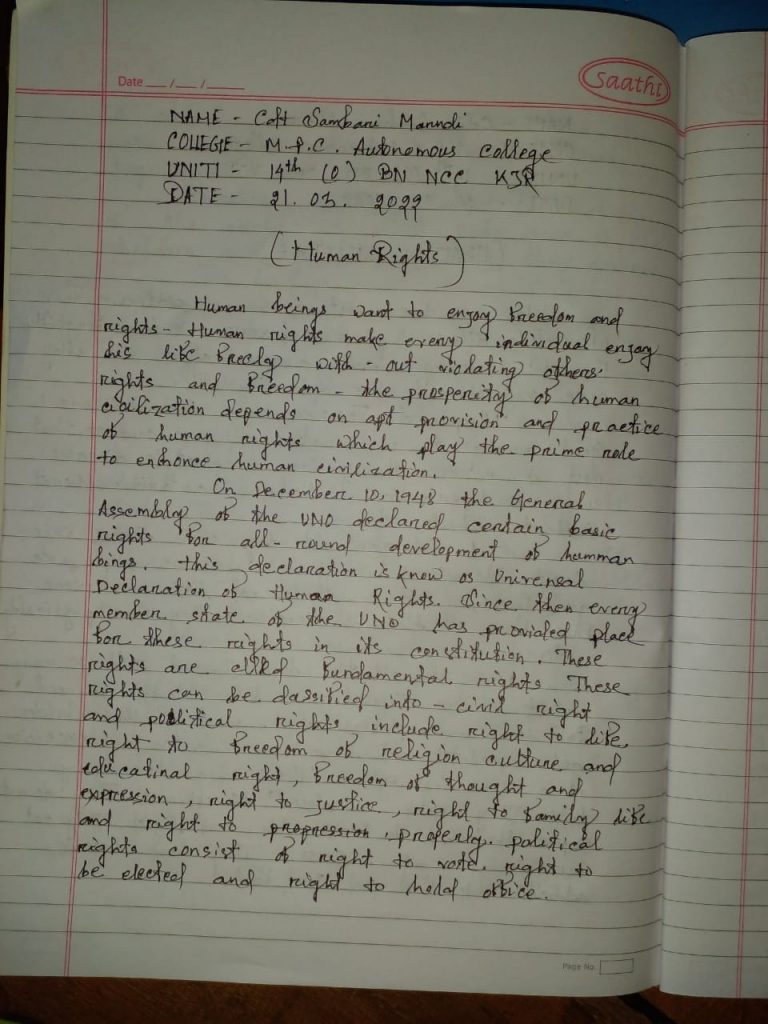 Date __/__/____
Saathi
NAME - Cdt Sambani Manndi
COLLEGIE - M.P.C. Autonomous College
UNITI - 14th (O) BN NCC KJR
DATE - 21. 03. 2022
(Human Rights)
Human beings want to enjoy freedom and
rights - Human rights make every individual enjoy
his life freely with - out violating others'
rights and freedom - the prosperity of human
cigilization depends on apt provision and practice
of human rights which play the prime role
to enhonce human civilization.
On December 10, 1948 the General
Assembly of the UNO declared centain basic
rights for all - round development of humman
bings. this declaration is know os Universal
Declaration of Human Rights. Since then every
member state of the UNO has provided place
for these rights in its constitution. These
rights are cllkd fundamental rights These
rights can be classified into - civil right
and political rights, include right to life,
right to freedom of religion culture and
educatinal right, freedom of thought and
expression, right to justice, right to family life
and right to propression, properly. political
rights consist of right to vote. right to
be elected and right to hold office.
Page No.